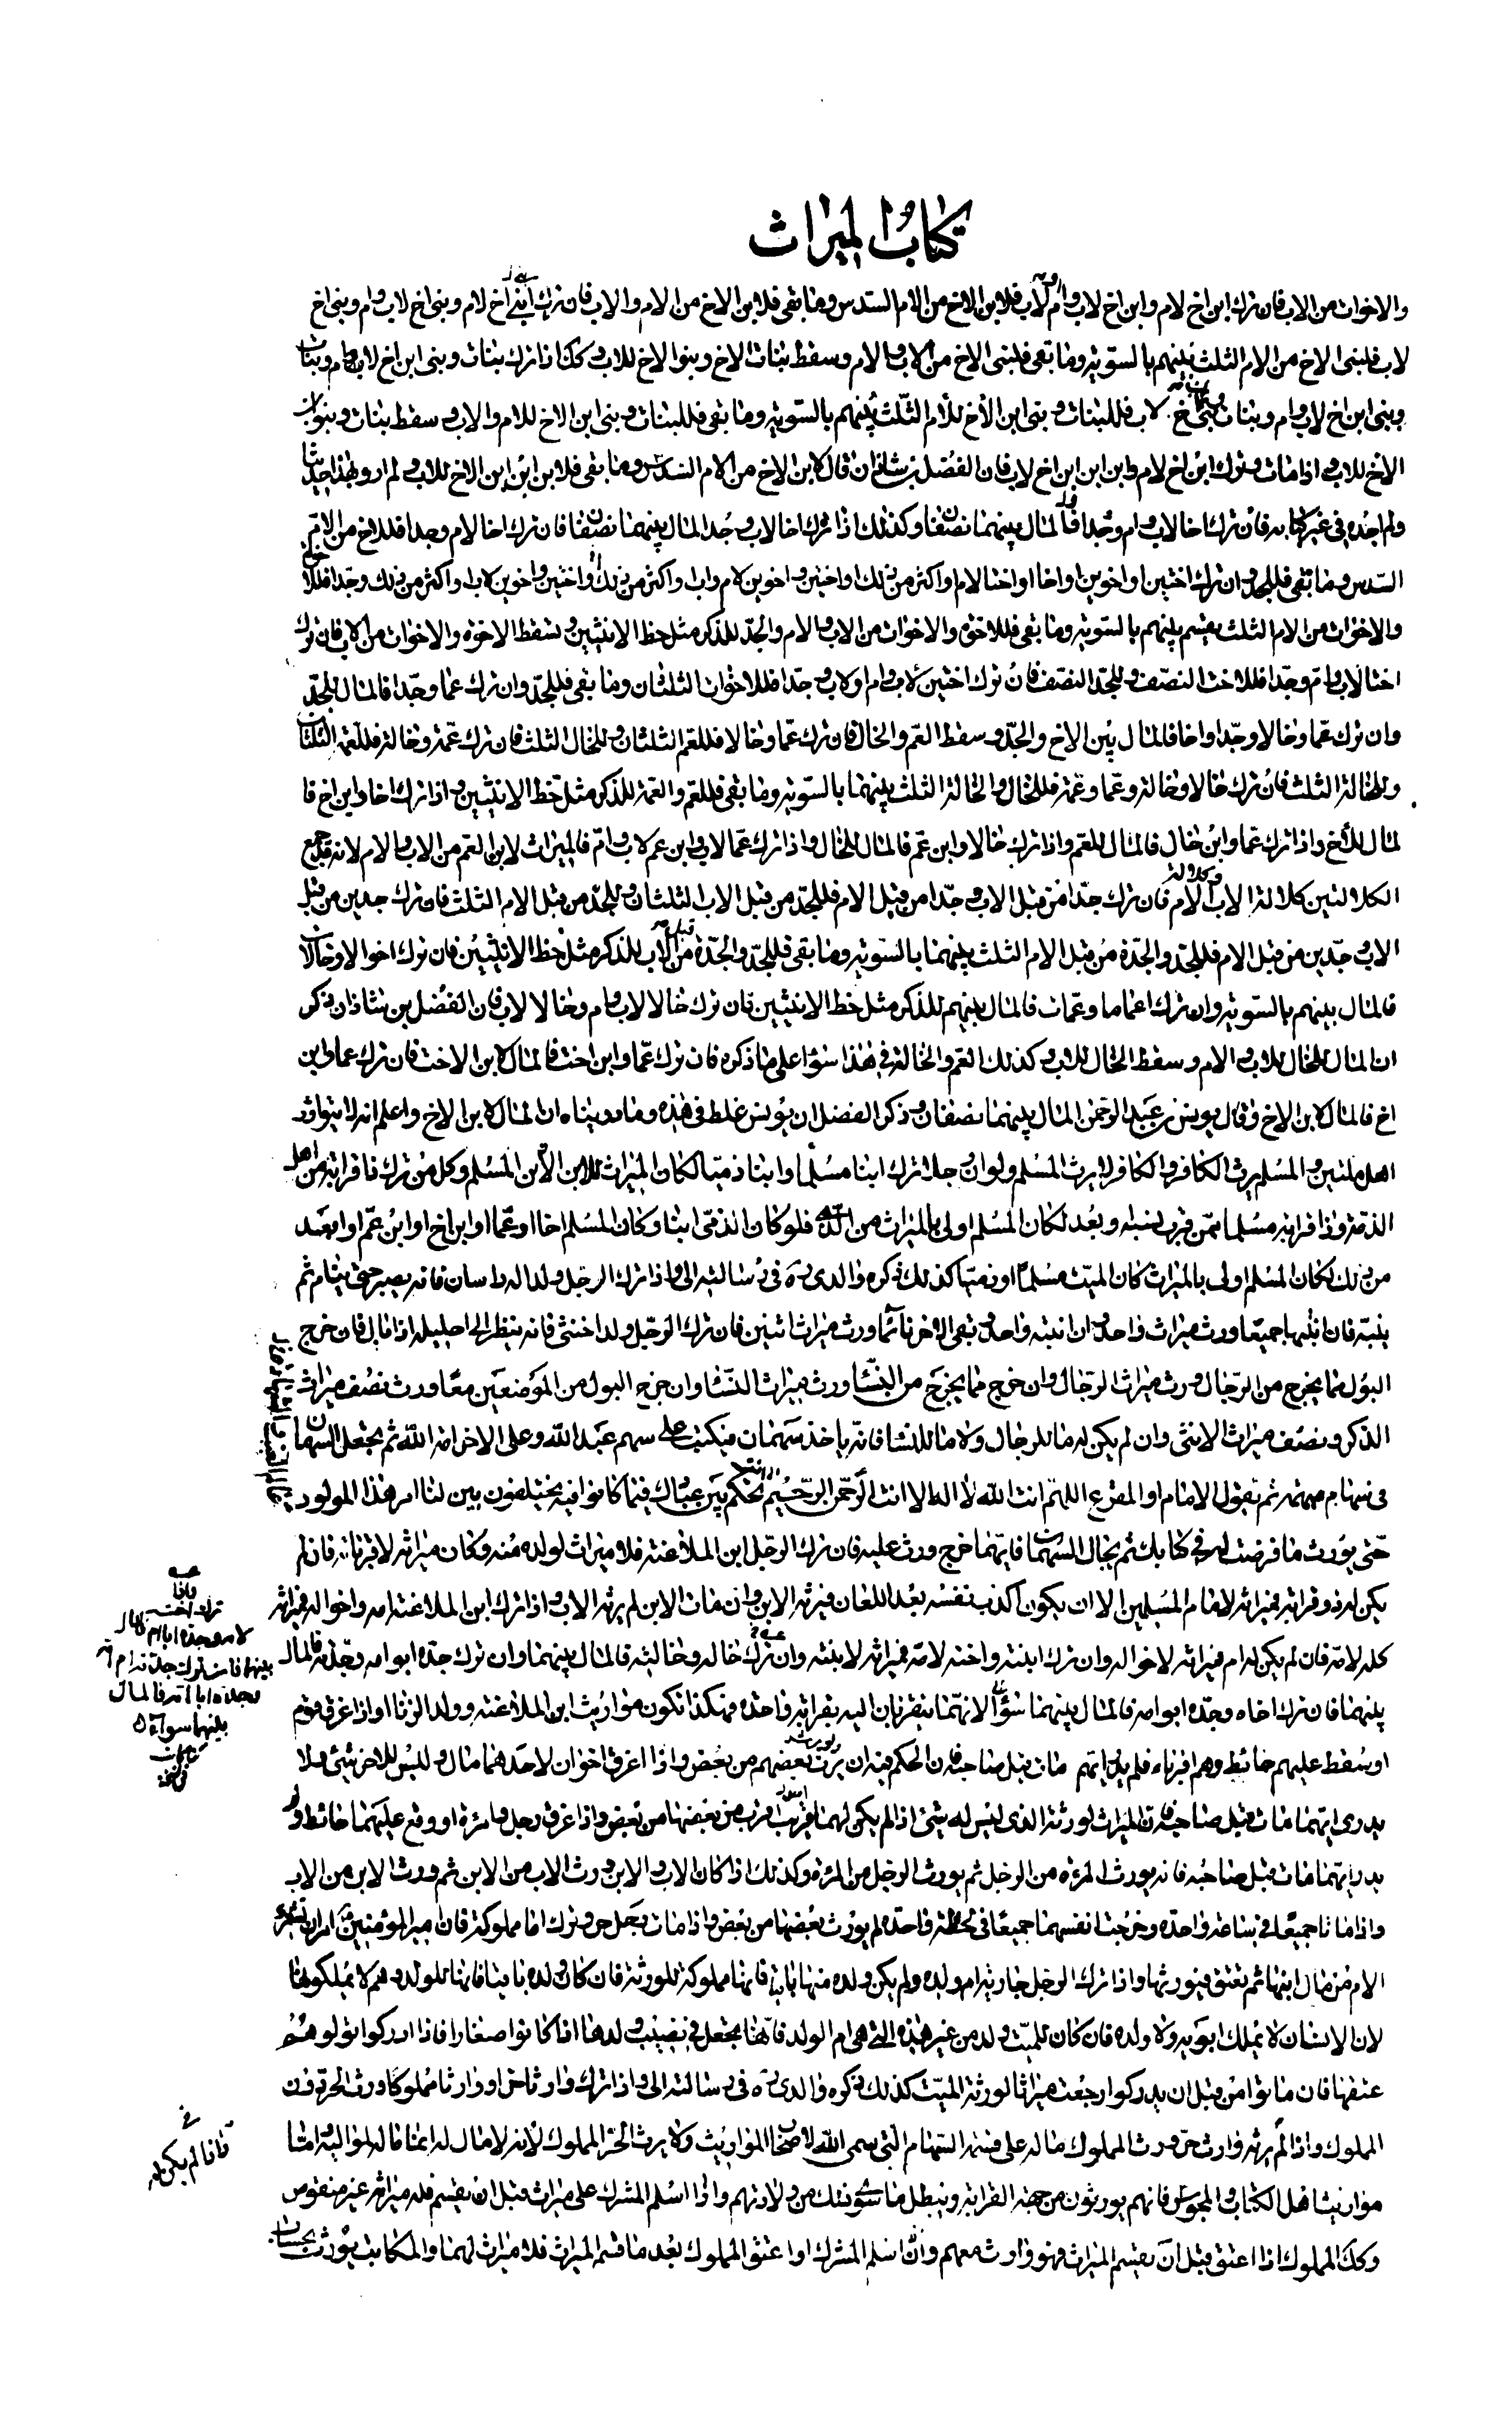 كتاب الميراث
والاخوات من الاب فان ترك ابن اخ لام وابن اخ لاب وام فلابن الاخ من الام السدس وما بقى فلابن الاخ من الام والاب فان ترك اخ لام وبنى اخ لاب وام وبنى اخ
لاب فلبنى الاخ من الام الثلث بينهم بالسوية وما بقى فلبنى الاخ من الاب والام وسقط بنات الاخ وبنوا الاخ للاب وكك اذا ترك بنات وبنى ابن اخ لاب وام وبنات
وبنى ابن اخ لاب وام وبنات وبنى اخ لاب فللبنات وبنى ابن الاخ للام الثلث بينهم بالسوية وما بقى فللبنات وبنى ابن الاخ للام والاب وسقط بنات وبنو ابن
الاخ للاب واذا مات وترك ابن اخ لام وابن ابن ابن اخ لاب فان الفضل بن شاذان قال لابن الاخ من الام السدس وما بقى فلابن ابن ابن الاخ للاب ولم ارو بهذا حديثا
ولم اجده فى غير كتابه فان ترك اخا لاب وام وجدا فالمال بينهما نصفان وكذلك اذا ترك اخا لاب وجدا المال بينهما نصفان فان ترك اخا لام وجدا فللاخ من الام
السدس وما بقى فللجد وان ترك اختين او اخوين او اخا او اختا لام واكثر من ذلك او اختين واخوين لام واب او اكثر من ذلك واختين واخوين لاب او اكثر من ذلك وجدا فللاخوة
والاخوات من الام الثلث يقسم بينهم بالسوية وما بقى فللاخوة والاخوات من الاب والام والجد للذكر مثل حظ الانثيين وسقط الاخوة والاخوات من الاب فان ترك
اختا لاب وام وجدا فللاخت النصف وللجد النصف فان ترك اختين لاب وام او لاب وجدا فللاختان الثلثان وما بقى فللجد وان ترك عما وجدا فالمال للجد
وان ترك عما وخالا وجدا واخا فالمال بين الاخ والجد وسقط العم والخال فان ترك عما وخالا فللعم الثلثان وللخال الثلث فان ترك عمة وخالة فللعمة الثلثان
وللخالة الثلث فان ترك خالا وخالة وعما وعمة فللخال والخالة الثلث بينهما بالسوية وما بقى فللعم والعمة للذكر مثل حظ الانثيين واذا ترك اخا وابن اخ فا
لمال للاخ واذا ترك عما وابن خال فالمال للعم واذا ترك خالا وابن عم فالمال للخال واذا ترك عما لاب وابن عم لاب وام فالميراث لابن العم من الاب والام لانه قد جمع
الكلالتين كلالة الاب وكلالة الام فان ترك جدا من قبل الاب وجدا من قبل الام فللجد من قبل الاب الثلثان وللجد من قبل الام الثلث فان ترك جدين من قبل
الاب وجدين من قبل الام فللجد والجدة من قبل الام الثلث بينهما بالسوية وما بقى فللجد والجدة من قبل الاب للذكر مثل حظ الانثيين فان ترك اخوالا وخالات
فالمال بينهم بالسوية وان ترك اعماما وعمات فالمال بينهم للذكر مثل حظ الانثيين فان ترك خالا لاب وام وخالا لاب فان الفضل بن شاذان ذكر
ان المال للخال للاب والام وسقط الخال للاب وكذلك العم والخالة فى هذا سوا على ما ذكره فان ترك عما وابن اخت فالمال لابن الاخت فان ترك عما وابن
اخ فالمال لابن الاخ وقال يونس بن عبد الرحمن المال بينهما نصفان وذكر الفضل ان يونس غلط فى هذه وما رويناه ان المال لابن الاخ واعلم انه لا يتوارث
اهل ملتين والمسلم يرث الكافر والكافر لا يرث المسلم ولو ان رجلا ترك ابنا مسلما وابنا ذميا لكان الميراث للابن المسلم وكل من ترك ذا قرابة من اهل
الذمة وذا قرابة مسلما ممن قرب نسبه وبعد لكان المسلم اولى بالميراث من الذمى فلو كان الذمى ابنا وكان المسلم اخا او عما او ابن اخ او ابن عم او ابعد
من ذلك لكان المسلم اولى بالميراث كان الميت مسلما او ذميا كذلك ذكره والدى ره فى رسالته الى واذا ترك الرجل ولدا له راسان فانه يصبر حتى ينام ثم
ينبه فان انتبها جميعا ورث ميراث واحد وان انتبه واحد وبقى الاخر نائما ورث ميراث اثنين فان ترك الرجل ولدا خنثى فانه ينظر الى احليله اذا بال فان خرج
البول مما يخرج من الرجال ورث ميراث الرجال وان خرج مما يخرج من النسا ورث ميراث النسا وان خرج البول من الموضعين معا ورث نصف ميراث
الذكر ونصف ميراث الانثى وان لم يكن له ما للرجال ولا ما للنسا فانه ياخذ سهمان فيكتب على سهم عبد الله وعلى الاخر امة الله ثم يجعل السهمان
فى سهام مبهمة ثم يقول الامام او المقرع اللهم انت الله لا اله الا انت الرحمن الرحيم انت تحكم بين عبادك فيما كانوا فيه يختلفون بين لنا امر هذا المولود
حتى يورث ما فرضت له فى كتابك ثم يجال السهمان فايهما خرج ورث عليه فان ترك الرجل ابن الملاعنة فلا ميراث لولده منه وكان ميراثه لاقربائه فان لم
يكن له ذو قرابة فميراثه لامام المسلمين الا ان يكون اكذب نفسه بعد اللعان فيرثه الابن وان مات الابن لم يرثه الاب واذا ترك ابن الملاعنة امه واخواله فميراثه
كله لامه فان لم يكن له ام فميراثه لاخواله وان ترك ابنته واخته لامه فميراثه لابنته وان ترك خاله وخالته فالمال بينهما وان ترك جده ابو امه وجدته فالمال
بينهما فان ترك اخاه وجده ابو امه فالمال بينهما سوا لانهما يتقربان اليه بقرابة واحدة وهكذا تكون مواريث ابن الملاعنة وولد الزنا واذا غرق قوم
او سقط عليهم حائط وهم اقرباء فلم يدر ايهم مات قبل صاحبه فان الحكم فيه ان يرث بعضهم من بعض واذا غرق اخوان لاحدهما مال وليس للاخر شيئ ولا
يدرى ايهما مات قبل صاحبه فان الميراث لورثة الذى ليس له شيئ اذا لم يكن لهما قريب اقرب من بعضهما من بعض واذا غرق رجل وامرءة او وقع عليهما حائط ولم
يدر ايهما مات قبل صاحبه فانه يورث المرءة من الرجل ثم يورث الرجل من المرءة وكذلك اذا كان الاب والابن ورث الاب من الابن ثم ورث الابن من الاب
واذا ماتا جميعا فى ساعة واحدة وخرجت انفسهما جميعا فى لحظة واحدة لم يورث بعضها من بعض واذا مات رجل حر وترك اما مملوكة فان امير المؤمنين امر ان تشترى
الام من مال ابنها ثم تعتق فيورثها واذا ترك الرجل جارية ام ولده ولم يكن ولده منها باقيا فانها مملوكة للورثة فان كان ولده باقيا فانها للولد وهم لا يملكونها
لان الانسان لا يملك ابويه ولا ولده فان كان للميت ولد من غير هذه التى هى ام الولد فانها تجعل فى نصيب ولدها اذا كانوا صغارا فاذا ادركوا تولوا هم
عتقها فان ماتوا من قبل ان يدركوا رجعت ميراثا لورثة الميت كذلك ذكره والدى ره فى رسالته الى واذا ترك وارثا حرا ووارثا مملوكا ورث الحر دون
المملوك واذا لم يرثه وارث حر ورث المملوك ماله على قسمة السهام التى سمى الله لاصحاب المواريث ولا يرث الحر المملوك لانه لا مال له انما ماله لمواليه واما
مواريث اهل الكتاب والمجوس فانهم يورثون من جهة القرابة ويبطل ما سوى ذلك من ولادتهم واذا اسلم المشرك على ميراث قبل ان يقسم فله ميراثه غير منقوص
وكك المملوك اذا اعتق قبل ان يقسم الميراث فهو وارث معهم وان اسلم المشرك او اعتق المملوك بعد ما قسم الميراث فلا ميراث لهما والمكاتب يورث بحساب
فاذا
ترك اخته
لامه وجده ابا ام فالمال
بينهما فان ترك جدته ام امه
وجده ابا امه فالمال
بينهما سواء
فاذا لم يكن له